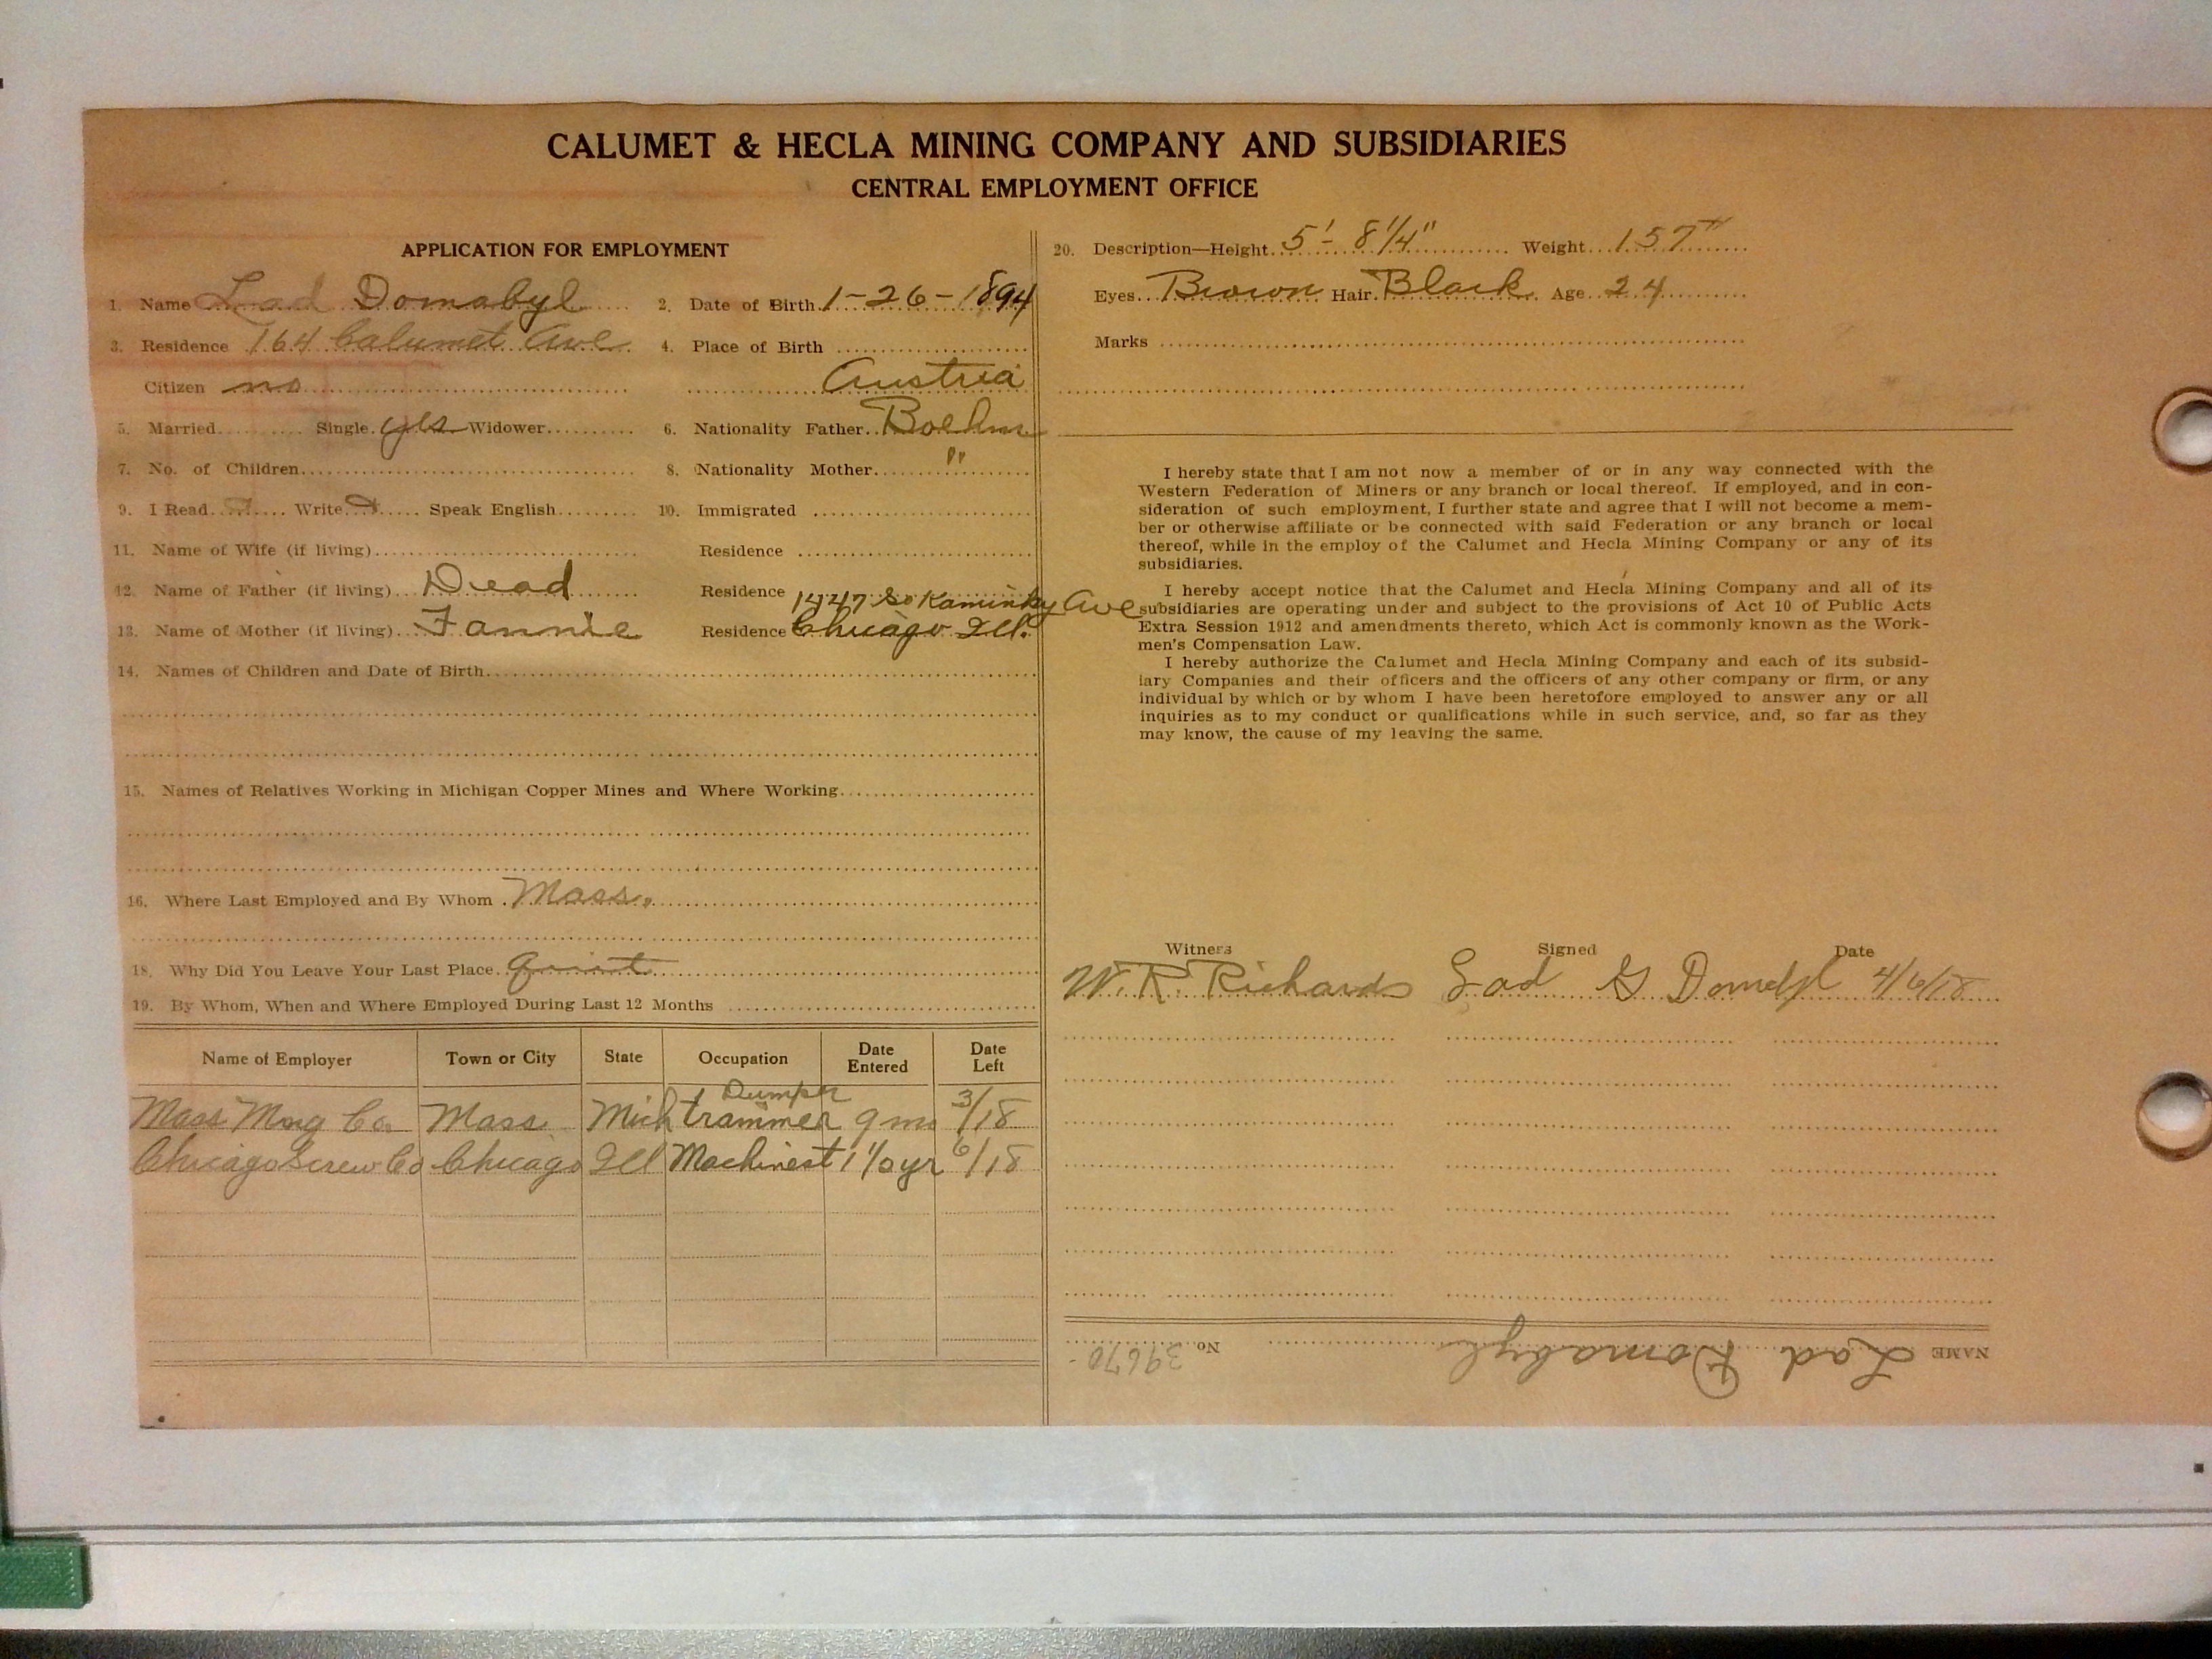 CALUMET & HECLA MINING COMPANY AND SUBSIDIARIES
CENTRAL EMPLOYMENT OFFICE
APPLICATION FOR EMPLOYMENT
1. Name Lad Domabyl 2. Date of Birth 1-26-1894
3. Residence 164 Calumet Ave 4. Place of Birth
Citizen no Austria
5. Married Single yes Widower 6. Nationality Father Boehm
7. No. of Children 8. Nationality Mother "
9. I Read Write Speak English 10. Immigrated
11. Name of Wife (if living) Residence
12. Name of Father (if living) Dead Residence 1447 So Ave
13. Name of Mother (if living) Fannie Residence Chicago Ill.
14. Names of Children and Date of Birth
15. Names of Relatives Working in Michigan Copper Mines and Where Working
16. Where Last Employed and By Whom Mass.
18. Why Did You Leave Your Last Place
19. By Whom, When and Where Employed During Last 12 Months
Name of Employer Town or City State Occupation Date Entered Date Left
Mass Mng Co Mass Mich trammer 9 mo 3/18
Chicago Screw Co Chicago Ill Machinest 6/18
20. Description—Height 5'- 8 1/4" Weight 157
Eyes Brown Hair Black Age 24
Marks
I hereby state that I am not now a member of or in any way connected with the
Western Federation of Miners or any branch or local thereof. If employed, and in con-
sideration of such employment, I further state and agree that I will not become a mem-
ber or otherwise affiliate or be connected with said Federation or any branch or local
thereof, while in the employ of the Calumet and Hecla Mining Company or any of its
subsidiaries.
I hereby accept notice that the Calumet and Hecla Mining Company and all of its
subsidiaries are operating under and subject to the provisions of Act 10 of Public Acts
Extra Session 1912 and amendments thereto, which Act is commonly known as the Work-
men's Compensation Law.
I hereby authorize the Calumet and Hecla Mining Company and each of its subsid-
iary Companies and their officers and the officers of any other company or firm, or any
individual by which or by whom I have been heretofore employed to answer any or all
inquiries as to my conduct or qualifications while in such service, and, so far as they
may know, the cause of my leaving the same.
Witness Signed Date
W. R. Richards Lad G 4/6/18
NAME Lad Domabyl No. 39670